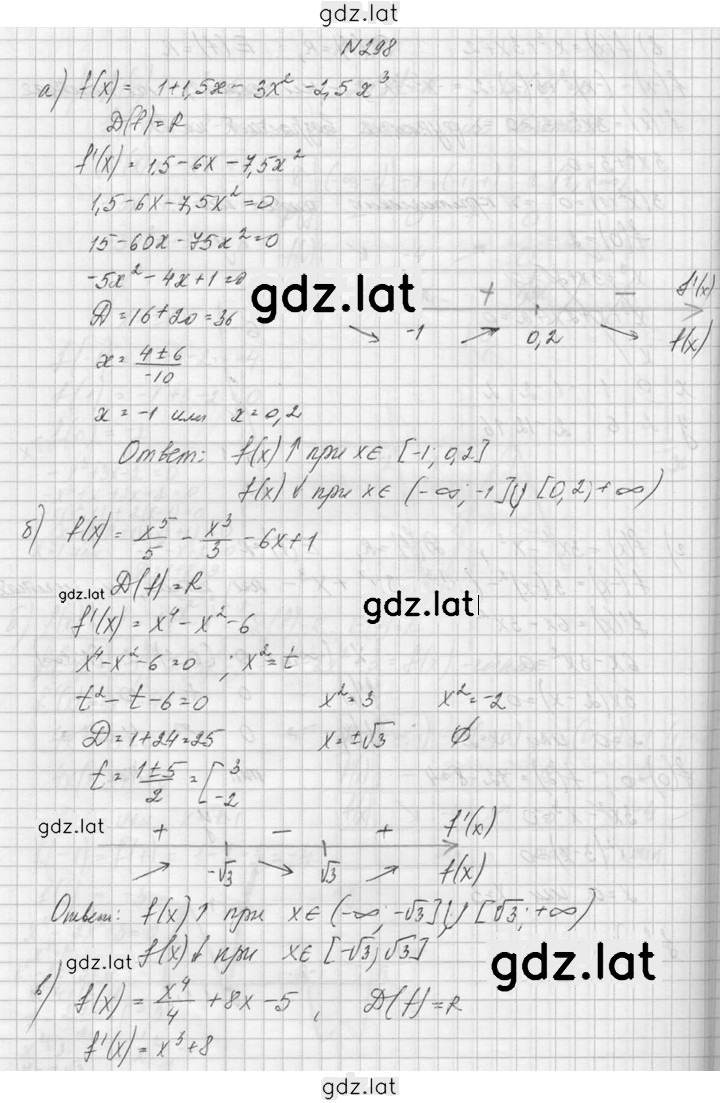 gdz.lat
N298
а) f(x) = 1+1,5x - 3x² - 2,5x³
D(f)=R
f'(x) = 1,5-6x-7,5x²
1,5-6x-7,5x²=0
15-60x-75x²=0
-5x²-4x+1=0
gdz.lat
+ − f'(x)
D=16+20=36
-1 0,2 f(x)
x = 4±6/-10
x = -1 или x=0,2
Ответ: f(x)↑ при x∈ [-1; 0,2]
f(x)↓ при x∈ (-∞; -1]∪[0,2; +∞)
б) f(x) = x⁵/5 - x³/3 - 6x+1
gdz.lat
D(f)=R
gdz.lat
f'(x) = x⁴-x²-6
x⁴-x²-6=0 ; x²=t
t²-t-6=0 x²=3 x²=-2
D=1+24=25 x=±√3 ∅
t = 1±5/2 = [3 -2
gdz.lat
+ − + f'(x)
-√3 √3 f(x)
Ответ: f(x)↑ при x∈(-∞; -√3]∪[√3; +∞)
f(x)↓ при x∈ [-√3; √3]
gdz.lat
gdz.lat
в) f(x) = x⁴/4 + 8x - 5 , D(f)=R
f'(x) = x³+8
gdz.lat